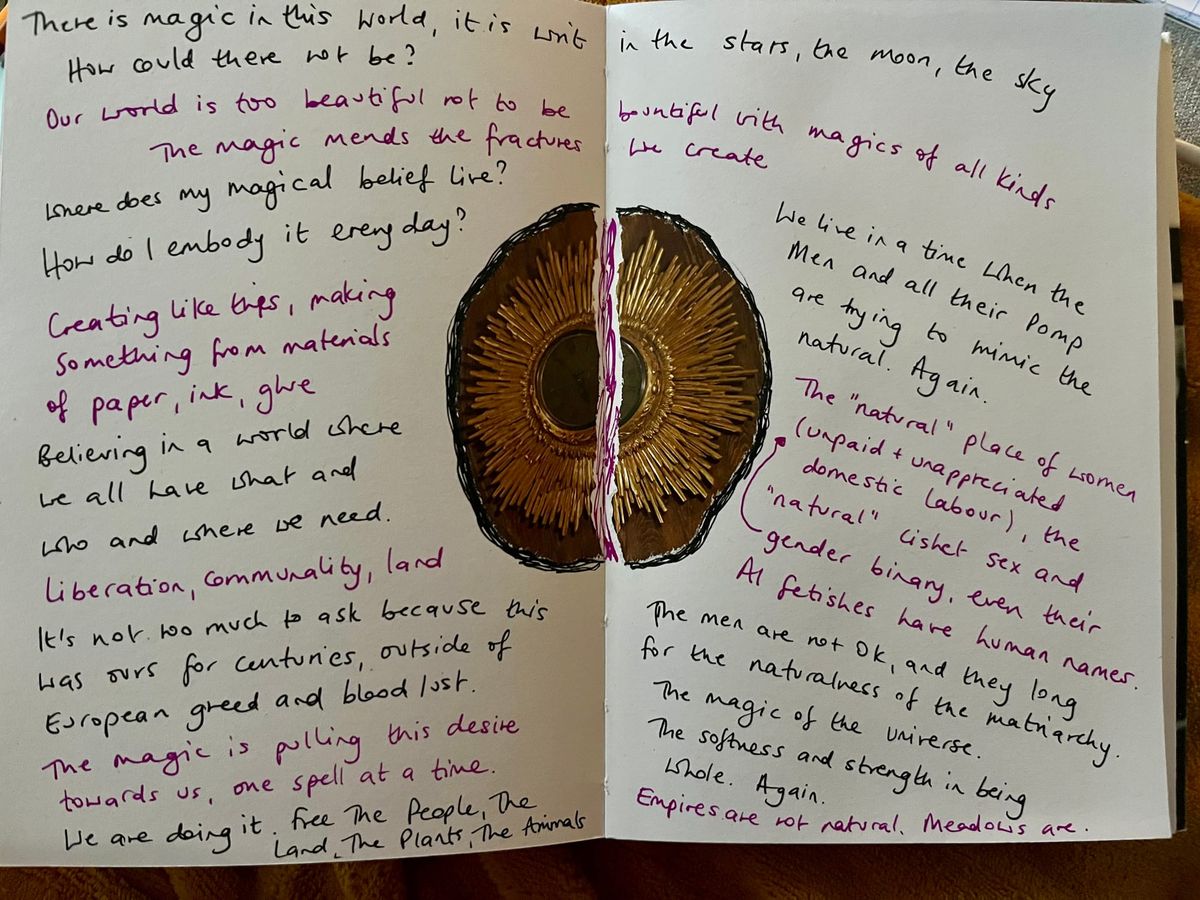 There is magic in this world, it is writ in the stars, the moon, the sky
How could there not be?
Our world is too beautiful not to be bountiful with magics of all kinds
The magic mends the fractures we create
Where does my magical belief live?
How do I embody it every day?
Creating like this, making
something from materials
of paper, ink, glue
Believing in a world where
we all have what and
who and where we need.
liberation, communality, land
It's not too much to ask because this
was ours for centuries, outside of
European greed and blood lust.
The magic is pulling this desire
towards us, one spell at a time.
We are doing it. Free The People, The
Land, The Plants, The Animals
We live in a time when the
Men and all their Pomp
are trying to mimic the
natural. Again.
The "natural" place of women
(unpaid + unappreciated
domestic labour), the
"natural" cishet sex and
gender binary, even their
AI fetishes have human names.
The men are not OK, and they long
for the naturalness of the matriarchy.
The magic of the universe.
The softness and strength in being
whole. Again.
Empires are not natural. Meadows are.